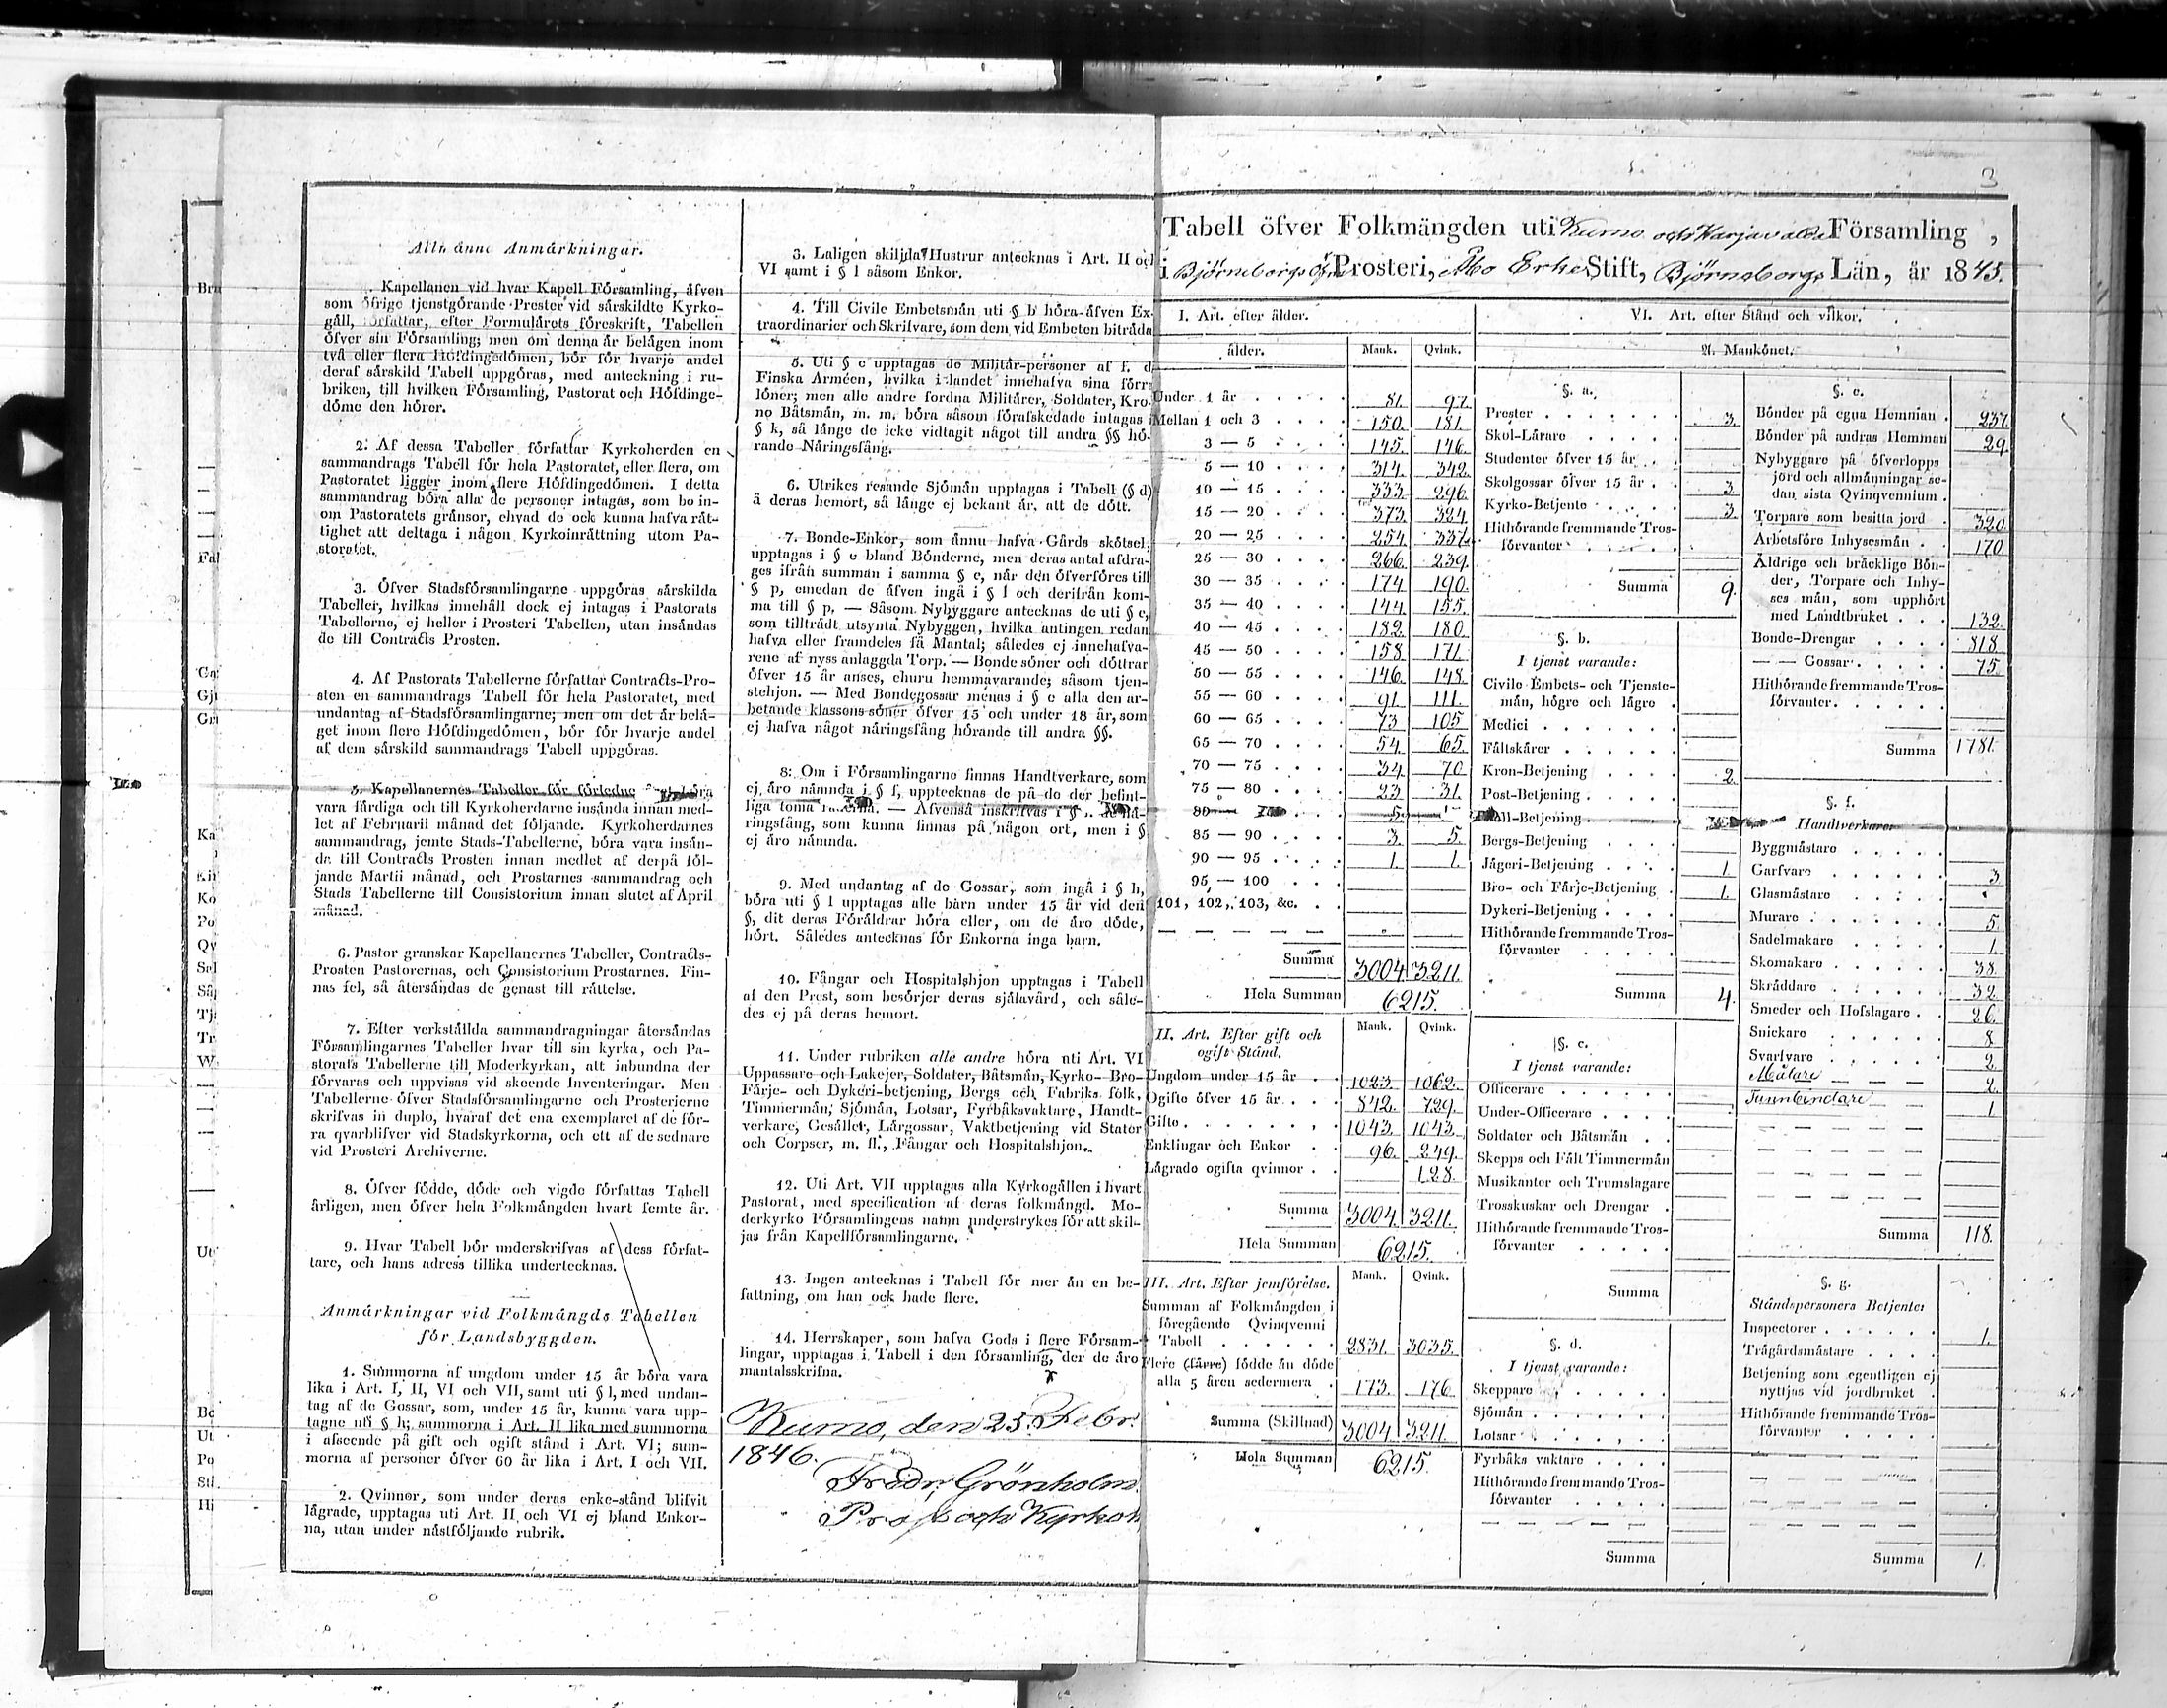 Allmänna Anmärkningar.
Kapellanen vid hvar Kapell Församling, äfven
som öfrige tjenstgörande Prester vid särskildte Kyrko-
gäll, författar, efter Formulärets föreskrift, Tabellen
öfver sin Församling; men om denna är belägen inom
två eller flera Höfdingedömen, bör för hvarje andel
deraf särskild Tabell uppgöras, med anteckning i ru-
briken, till hvilken Församling, Pastorat och Höfdinge-
döme den hörer.
2. Af dessa Tabeller författar Kyrkoherden en
sammandrags Tabell för hela Pastoratet, eller flera, om
Pastoratet ligger inom flere Höfdingedömen. I detta
sammandrag böra alla de personer intagas, som bo in-
om Pastoratets gränsor, ehvad de ock kunna hafva rät-
tighet att deltaga i någon Kyrkoinrättning utom Pa-
storatet.
3. Öfver Stadsförsamlingarne uppgöras särskilda
Tabeller, hvilkas innehåll dock ej intagas i Pastorats
Tabellerne, ej heller i Prosteri Tabellen, utan insändas
de till Contracts Prosten.
4. Af Pastorats Tabellerne författar Contracts-Pro-
sten en sammandrags Tabell för hela Pastoratet, med
undantag af Stadsförsamlingarne; men om det är belä-
get inom flere Höfdingedömen, bör för hvarje andel
af dem särskild sammandrags Tabell uppgöras.
5. Kapellanernes Tabeller för förledne året böra
vara färdiga och till Kyrkoherdarne insända innan med-
let af Februarii månad det följande. Kyrkoherdarnes
sammandrag, jemte Stads-Tabellerne, böra vara insän-
de till Contracts Prosten innan medlet af derpå föl-
jande Martii månad, och Prostarnes sammandrag och
Stads Tabellerne till Consistorium innan slutet af April
månad.
6. Pastor granskar Kapellanernes Tabeller, Contracts-
Prosten Pastorernas, och Consistorium Prostarnes. Fin-
nas fel, så återsändas de genast till rättelse.
7. Efter verkställda sammandragningar återsändas
Församlingarnes Tabeller hvar till sin kyrka, och Pa-
storats Tabellerne till Moderkyrkan, att inbundna der
förvaras och uppvisas vid skeende Inventeringar. Men
Tabellerne öfver Stadsförsamlingarne och Prosterierne
skrifvas in duplo, hvaraf det ena exemplaret af de för-
ra qvarblifver vid Stadskyrkorna, och ett af de sednare
vid Prosteri Archiverne.
8. Öfver födde, döde och vigde författas Tabell
årligen, men öfver hela Folkmängden hvart femte år.
9. Hvar Tabell bör underskrifvas af dess förfat-
tare, och hans adress tillika undertecknas.
Anmärkningar vid Folkmängds Tabellen
för Landsbyggden.
1. Summorna af ungdom under 15 år böra vara
lika i Art. I, II, VI och VII, samt uti § l, med undan-
tag af de Gossar, som, under 15 år, kunna vara upp-
tagne uti § h; summorna i Art. II lika med summorna
i afseende på gift och ogift stånd i Art. VI; sum-
morna af personer öfver 60 år lika i Art. I och VII.
2. Qvinnor, som under deras enke-stånd blifvit
lägrade, upptagas uti Art. II och VI ej bland Enkor-
na, utan under nästföljande rubrik.
3. Laligen skiljda Hustrur antecknas i Art. II och
VI samt i § l såsom Enkor.
4. Till Civile Embetsmän uti § b höra äfven Ex-
traordinarier och Skrifvare, som dem vid Embeten biträda
5. Uti § c upptagas de Militär-personer af f. d.
Finska Arméen, hvilka i landet innehafva sina förra
löner; men alle andre fordna Militärer, Soldater, Kro-
no Båtsmän, m. m. böra såsom förafskedade intagas i
§ k, så länge de icke vidtagit något till andra §§ hö-
rande Näringsfång.
6. Utrikes resande Sjömän upptagas i Tabell (§ d)
å deras hemort, så länge ej bekant är, att de dött.
7. Bonde-Enkor, som ännu hafva Gårds skötsel,
upptagas i § e bland Bönderne, men deras antal afdra-
ges ifrån summan i samma § e, när den öfverföres till
§ p, emedan de äfven ingå i § l och derifrån kom-
ma till § p. — Såsom Nybyggare antecknas de uti § e,
som tillträdt utsynta Nybyggen, hvilka antingen redan
hafva eller framdeles få Mantal; således ej innehafva-
rene af nyss anlaggda Torp. — Bonde söner och döttrar
öfver 15 år anses, ehuru hemmavarande, såsom tjen-
stehjon. — Med Bondegossar menas i § e alla den ar-
betande klassens söner öfver 15 och under 18 år, som
ej hafva något näringsfång hörande till andra §§.
8. Om i Församlingarne finnas Handtverkare, som
ej äro nämnda i § f, upptecknas de på de der befint-
liga toma — Äfvenså inskrifvas i § nä-
ringsfång, som kunna finnas på någon ort, men i §
ej äro nämnda.
9. Med undantag af de Gossar, som ingå i § h,
böra uti § l upptagas alle barn under 15 år vid den
§, dit deras Föräldrar höra eller, om de äro döde,
hört. Således antecknas för Enkorna inga barn.
10. Fångar och Hospitalshjon upptagas i Tabell
af den Prest, som besörjer deras själavård, och såle-
des ej på deras hemort.
11. Under rubriken alle andre höra uti Art. VI
Uppassare och Lakejer, Soldater, Båtsmän, Kyrko- Bro-
Färje- och Dykeri-betjening, Bergs och Fabriks folk,
Timmermän, Sjömän, Lotsar, Fyrbåksvaktare, Handt-
verkare, Gesäller, Lärgossar, Vaktbetjening vid Stater
och Corpser, m. fl., Fångar och Hospitalshjon.
12. Uti Art. VII upptagas alla Kyrkogällen i hvart
Pastorat, med specification af deras folkmängd. Mo-
derkyrko Församlingens namn understrykes för att skil-
jas från Kapellförsamlingarne.
13. Ingen antecknas i Tabell för mer än en be-
fattning, om han ock hade flere.
14. Herrskaper, som hafva Gods i flere Försam-
lingar, upptagas i Tabell i den församling, der de äro
mantalsskrifna.
Kumo, den 25 Febr.
1846.
Fredr. Grönholm
Prost och Kyrkoh
3
Tabell öfver Folkmängden uti Kumo och Harjavalda Församling,
i Björneborgs Öfre Prosteri, Åbo Erke Stift, Björneborgs Län, år 1845.
I. Art. efter ålder.
ålder. Mank. Qvink.
Under 1 år 81. 97.
Mellan 1 och 3 150. 181.
3 — 5 145. 146.
5 — 10 314. 342.
10 — 15 333. 296.
15 — 20 373. 324.
20 — 25 254. 337.
25 — 30 266. 239.
30 — 35 174 190.
35 — 40 144 155.
40 — 45 182. 180.
45 — 50 158 171.
50 — 55 146. 148.
55 — 60 91. 111.
60 — 65 73 105
65 — 70 54. 65.
70 — 75 34. 70
75 — 80 23 31.
80 — 5.
85 — 90 3. 5.
90 — 95 1. 1.
95 — 100
101, 102, 103, &c.
Summa 3004. 3211.
Hela Summan 6215.
II. Art. Efter gift och
ogift Stånd.
Mank. Qvink.
Ungdom under 15 år 1023. 1062.
Ogifte öfver 15 år 842. 729.
Gifte 1043. 1043.
Enklingar och Enkor 96. 249.
Lägrade ogifta qvinnor 128.
Summa 3004. 3211.
Hela Summan 6215.
III. Art. Efter jemförelse.
Mank. Qvink.
Summan af Folkmängden i
föregående Qvinqvenni
Tabell 2831. 3035.
Flere (färre) födde än döde
alla 5 åren sedermera 173. 176.
Summa (Skillnad) 3004. 3211.
Hela Summan 6215.
VI. Art. efter Stånd och vilkor.
A. Mankönet.
§. a.
Prester 3.
Skol-Lärare
Studenter öfver 15 år
Skolgossar öfver 15 år 3.
Kyrko-Betjente 3.
Hithörande fremmande Tros-
förvanter
Summa 9.
§. b.
I tjenst varande:
Civile Embets- och Tjenste-
män, högre och lägre
Medici
Fältskärer
Kron-Betjening 2.
Post-Betjening
Tull-Betjening
Bergs-Betjening
Jägeri-Betjening 1.
Bro- och Färje-Betjening 1.
Dykeri-Betjening
Hithörande fremmande Tros-
förvanter
Summa 4.
§. c.
I tjenst varande:
Officerare
Under-Officerare
Soldater och Båtsmän
Skepps och Fält Timmermän
Musikanter och Trumslagare
Trosskuskar och Drengar
Hithörande fremmande Tros-
förvanter
Summa
§. d.
I tjenst varande:
Skeppare
Sjömän
Lotsar
Fyrbåks vaktare
Hithörande fremmande Tros-
förvanter
Summa
§. e.
Bönder på egna Hemman 237.
Bönder på andras Hemman 29.
Nybyggare på öfverlopps
jord och allmänningar se-
dan sista Qvinqvennium
Torpare som besitta jord 320.
Arbetsföre Inhysesmän 170.
Åldrige och bräcklige Bön-
der, Torpare och Inhy-
ses män, som upphört
med Landtbruket 132.
Bonde-Drengar 818.
— — Gossar 75.
Hithörande fremmande Tros-
förvanter
Summa 1781.
§. f.
Handtverkare
Byggmästare
Garfvare 3
Glasmästare
Murare 5.
Sadelmakare 1.
Skomakare 38.
Skräddare 32.
Smeder och Hofslagare 26.
Snickare 8.
Svarfvare 2.
Målare 2.
Tunnbindare 1
Summa 118.
§. g.
Ståndspersoners Betjente:
Inspectorer 1.
Trägårdsmästare
Betjening som egentligen ej
nyttjas vid jordbruket
Hithörande fremmande Tros-
förvanter
Summa 1.